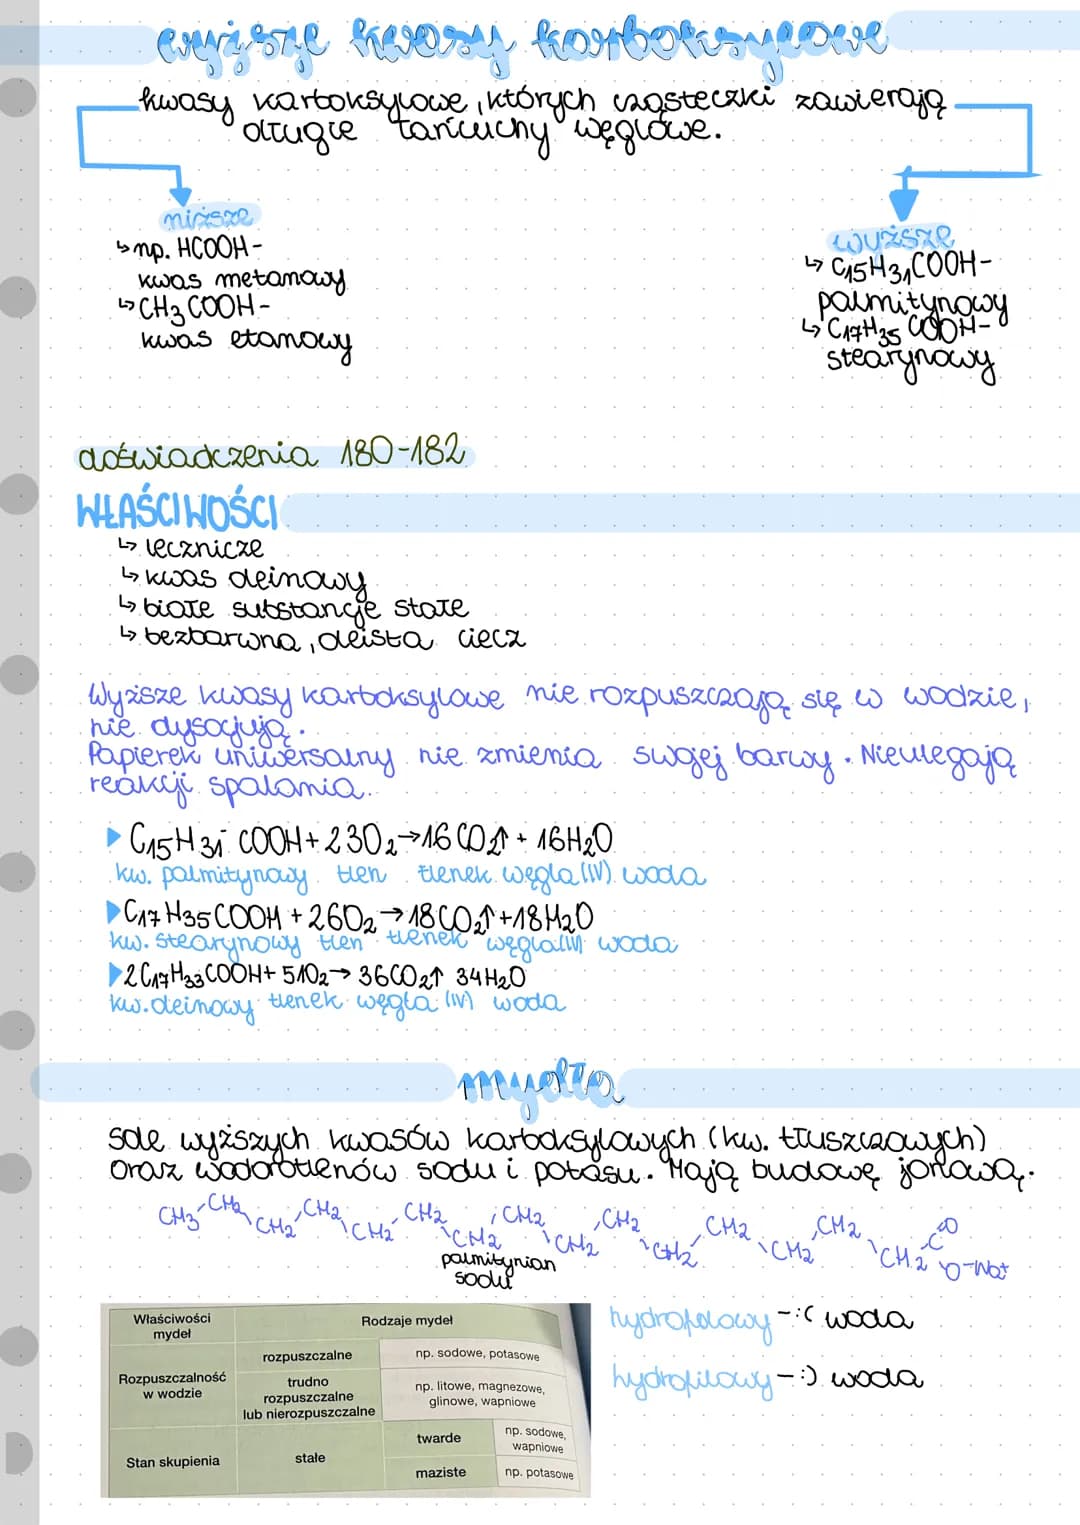 wyższe kwasy karboksylowe
kwasy karboksylowe, których cząsteczki zawierają
długie łańcuchy węglowe.
niższe
↳ np. HCOOH -
kwas metanowy
↳ CH3COOH -
kwas etanowy
wyższe
↳ C15H31COOH -
palmitynowy
↳ C17H35COOH -
stearynowy
doświadczenia 180-182
WŁAŚCIWOŚCI
↳ lecznicze
↳ kwas oleinowy
↳ białe substancje stałe
↳ bezbarwna, oleista ciecz
Wyższe kwasy karboksylowe nie rozpuszczają się w wodzie,
nie dysocjują.
Papierek uniwersalny nie zmienia swojej barwy. Nieulegają
reakcji spalania.
C15H31COOH + 23O2 → 16CO2↑ + 16H2O
kw. palmitynowy tlen tlenek węgla (IV) woda
C17H35COOH + 26O2 → 18CO2↑ + 18H2O
kw. stearynowy tlen tlenek węgla(IV) woda
2C17H33COOH + 51O2 → 36CO2↑ 34H2O
kw. oleinowy tlenek węgla (IV) woda
mydła
sole wyższych kwasów karboksylowych (kw. tłuszczowych)
oraz wodorotlenów sodu i potasu. Mają budowę jonową.
CH3 CH2 CH2 CH2 CH2 CH2 CH2 CH2 CH2 CH2 CH2 CH2 CH2 CH2 CH2 C O O-Na+
palmitynian
sodu
Właściwości
mydeł
Rodzaje mydeł
Rozpuszczalność
w wodzie
rozpuszczalne
np. sodowe, potasowe
trudno
rozpuszczalne
lub nierozpuszczalne
np. litowe, magnezowe,
glinowe, wapniowe
Stan skupienia
stałe
twarde
np. sodowe,
wapniowe
maziste
np. potasowe
hydrofobowy - :( woda
hydrofilowy - :) woda